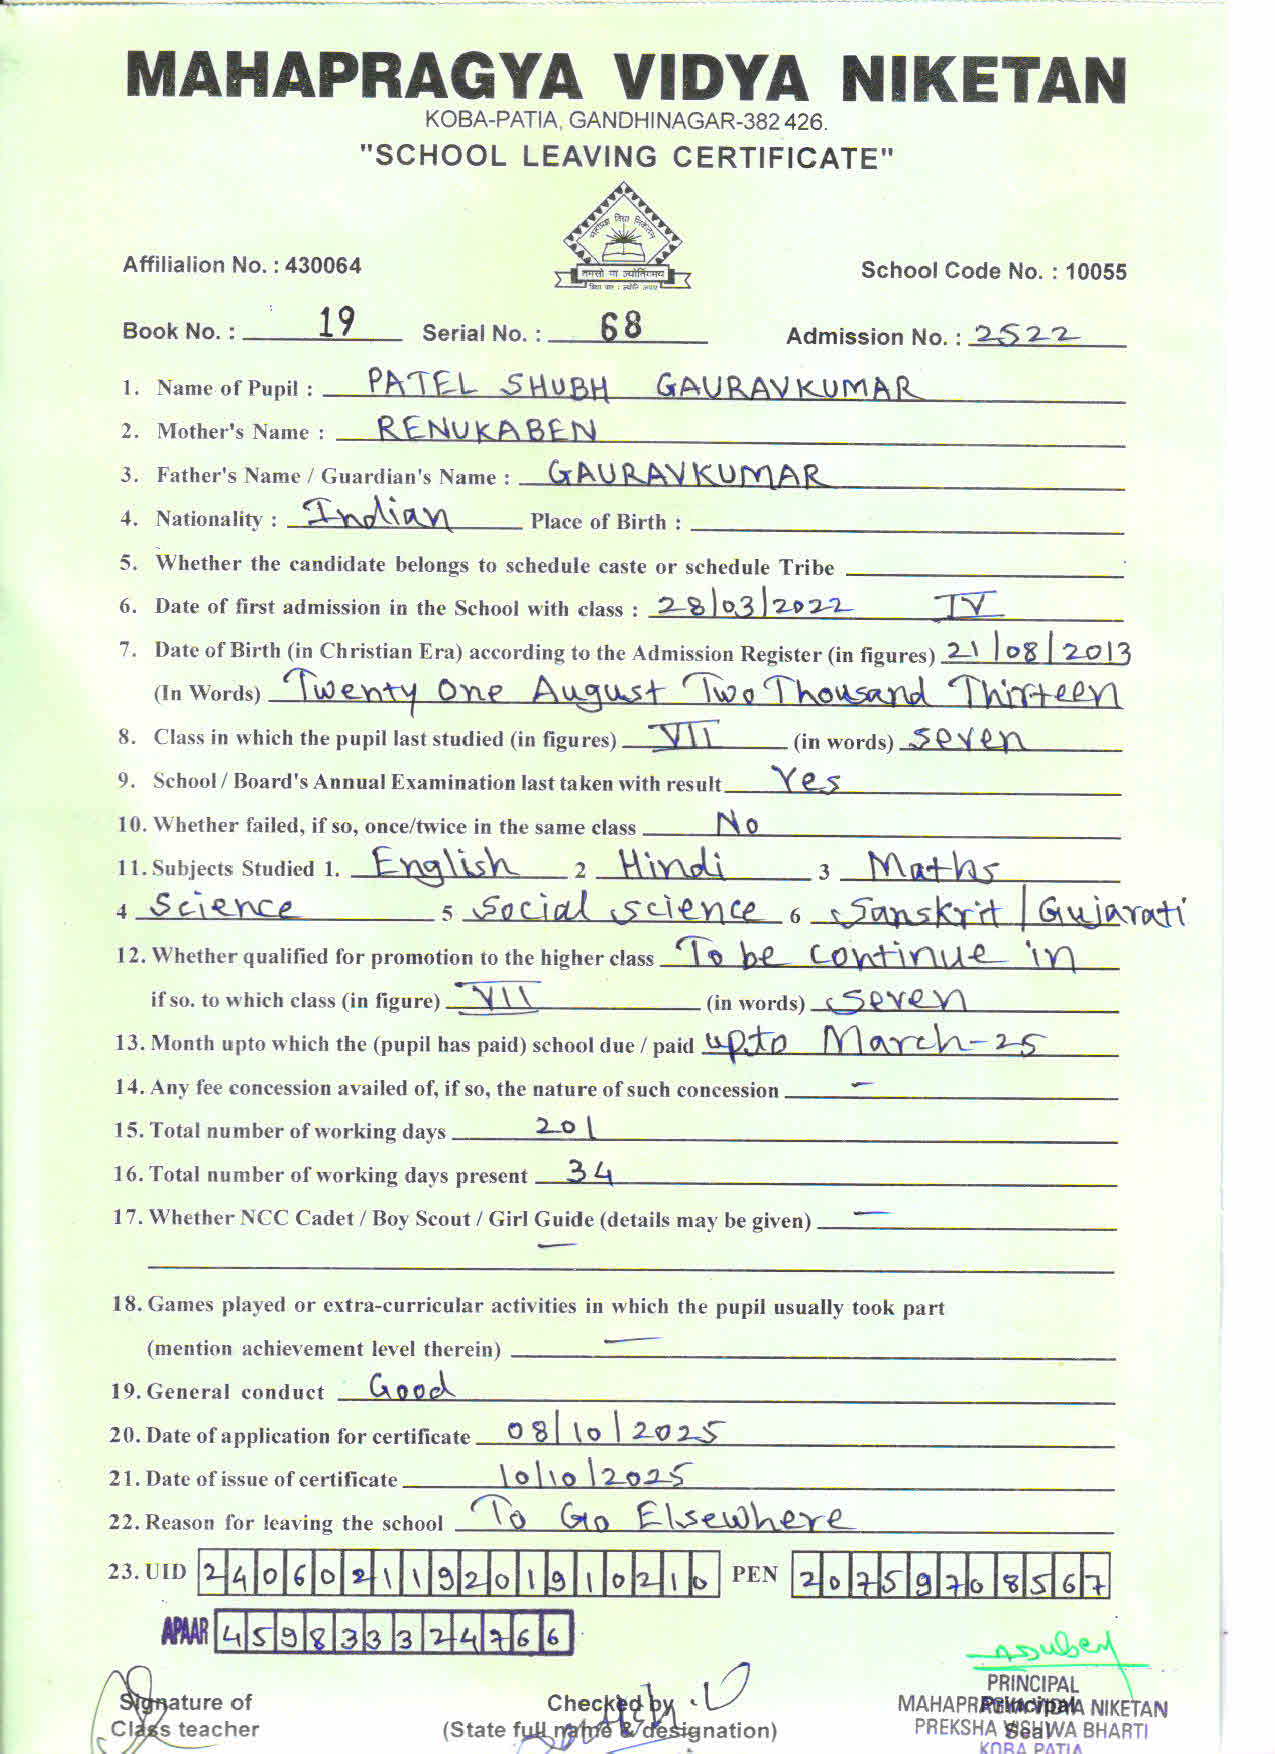 MAHAPRAGYA VIDYA NIKETAN
KOBA-PATIA, GANDHINAGAR-382 426.
"SCHOOL LEAVING CERTIFICATE"
महाप्रज्ञ विद्या निकेतन
तमसो मा ज्योतिर्गमय
Affilialion No. : 430064
School Code No. : 10055
Book No. : 19 Serial No. : 68 Admission No. : 2522
1. Name of Pupil : PATEL SHUBH GAURAVKUMAR
2. Mother's Name : RENUKABEN
3. Father's Name / Guardian's Name : GAURAVKUMAR
4. Nationality : Indian Place of Birth :
5. Whether the candidate belongs to schedule caste or schedule Tribe
6. Date of first admission in the School with class : 28/03/2022 IV
7. Date of Birth (in Christian Era) according to the Admission Register (in figures) 21/08/2013
(In Words) Twenty One August Two Thousand Thirteen
8. Class in which the pupil last studied (in figures) VII (in words) seven
9. School / Board's Annual Examination last taken with result Yes
10. Whether failed, if so, once/twice in the same class No
11. Subjects Studied 1. English 2 Hindi 3 Maths
4 Science 5 Social science 6 Sanskrit / Gujarati
12. Whether qualified for promotion to the higher class To be continue in
if so. to which class (in figure) VII (in words) seven
13. Month upto which the (pupil has paid) school due / paid upto March-25
14. Any fee concession availed of, if so, the nature of such concession -
15. Total number of working days 201
16. Total number of working days present 34
17. Whether NCC Cadet / Boy Scout / Girl Guide (details may be given) -
-
18. Games played or extra-curricular activities in which the pupil usually took part
(mention achievement level therein) -
19. General conduct Good
20. Date of application for certificate 08/10/2025
21. Date of issue of certificate 10/10/2025
22. Reason for leaving the school To Go Elsewhere
23. UID 240602119201910210 PEN 20759708567
APAAR 459833324766
Signature of
Class teacher
Checked by
(State full name & designation)
PRINCIPAL
MAHAPRAGYA VIDYA NIKETAN
PREKSHA VISHWA BHARTI
KOBA PATIA
Principal
Seal